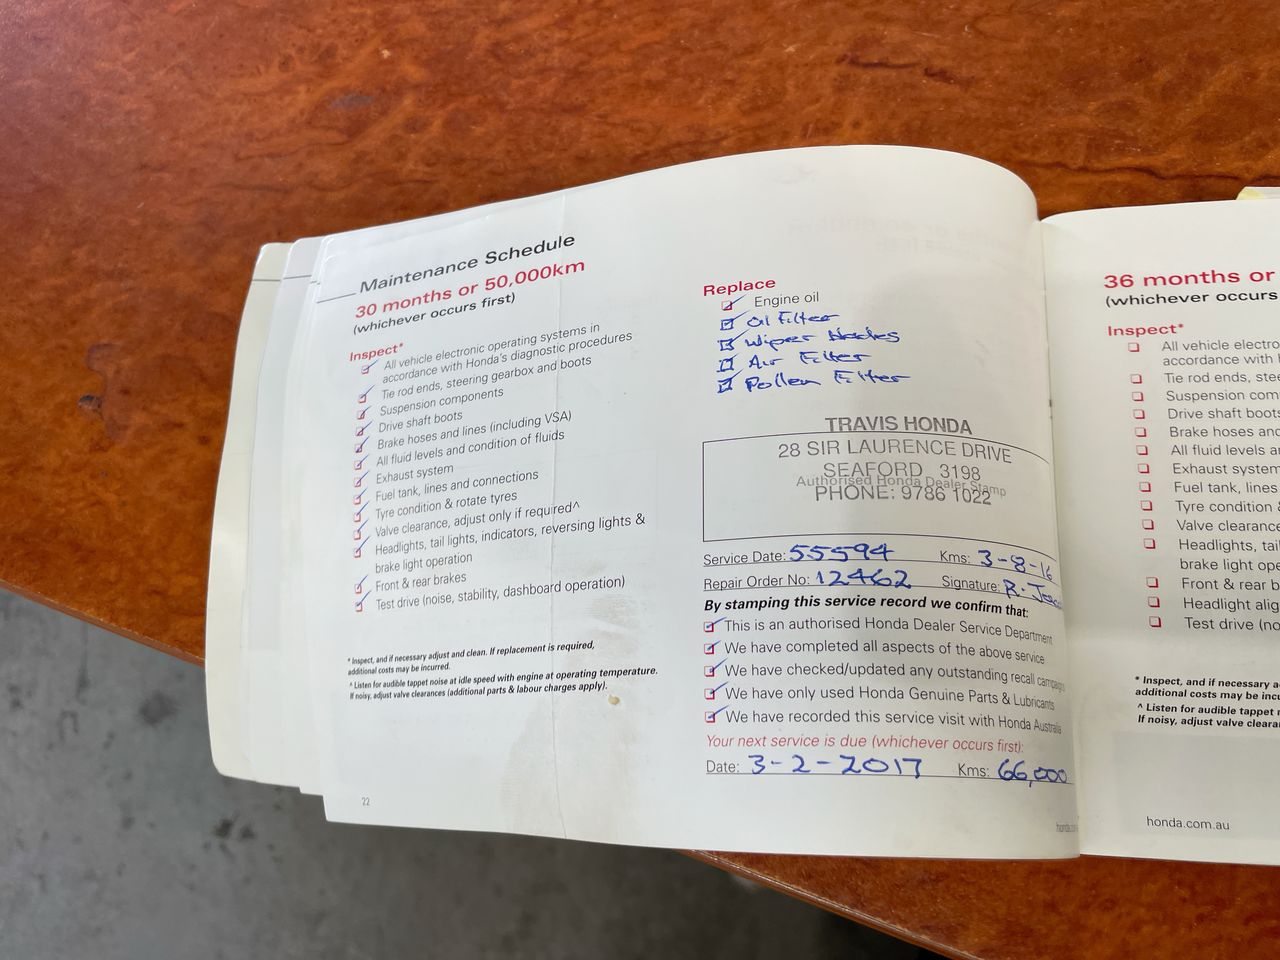 Maintenance Schedule
30 months or 50,000km
(whichever occurs first)
Inspect*
All vehicle electronic operating systems in
accordance with Honda's diagnostic procedures
Tie rod ends, steering gearbox and boots
Suspension components
Drive shaft boots
Brake hoses and lines (including VSA)
All fluid levels and condition of fluids
Exhaust system
Fuel tank, lines and connections
Tyre condition & rotate tyres
Valve clearance, adjust only if required^
Headlights, tail lights, indicators, reversing lights &
brake light operation
Front & rear brakes
Test drive (noise, stability, dashboard operation)
* Inspect, and if necessary adjust and clean. If replacement is required,
additional costs may be incurred.
^ Listen for audible tappet noise at idle speed with engine at operating temperature.
If noisy, adjust valve clearances (additional parts & labour charges apply).
22
Replace
Engine oil
Oil Filter
Wiper Blades
Air Filter
Pollen Filter
TRAVIS HONDA
28 SIR LAURENCE DRIVE
SEAFORD 3198
Authorised Honda Dealer Stamp
PHONE: 9786 1022
Service Date: 55594 Kms: 3-8-16
Repair Order No: 12462 Signature: R.
By stamping this service record we confirm that:
This is an authorised Honda Dealer Service Department
We have completed all aspects of the above service
We have checked/updated any outstanding recall campaigns
We have only used Honda Genuine Parts & Lubricants
We have recorded this service visit with Honda Australia
Your next service is due (whichever occurs first):
Date: 3-2-2017 Kms: 66,000
36 months or
(whichever occurs
Inspect*
All vehicle electro
accordance with H
Tie rod ends, stee
Suspension com
Drive shaft boots
Brake hoses and
All fluid levels a
Exhaust system
Fuel tank, lines
Tyre condition &
Valve clearance
Headlights, tail
brake light ope
Front & rear b
Headlight alig
Test drive (no
* Inspect, and if necessary a
additional costs may be incu
^ Listen for audible tappet
If noisy, adjust valve cleara
honda.com.au